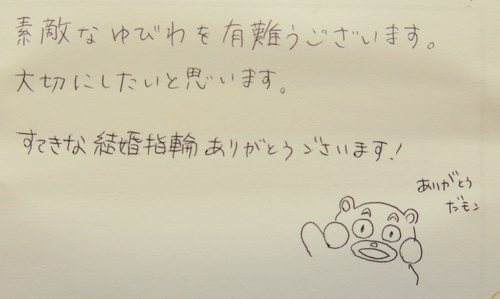 素敵なゆびわを有難うございます。
大切にしたいと思います。
すてきな結婚指輪ありがとうございます!
ありがとう
だモン